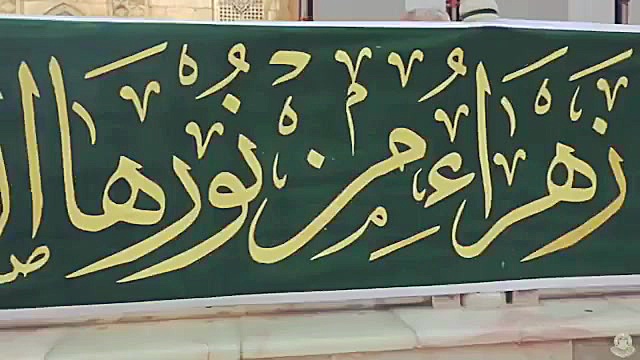 زَهراءُ مِن نُورِها